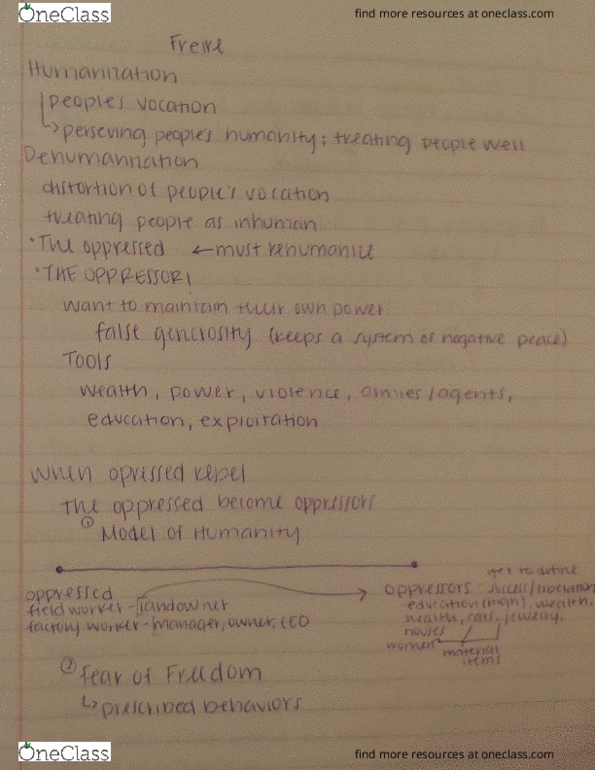 OneClass
find more resources at oneclass.com
Freire
Humanization
people's vocation
perseving people's humanity; treating people well
Dehumanization
distortion of people's vocation
treating people as inhuman
•The oppressed ← must rehumanize
•THE OPPRESSOR!
want to maintain their own power
false generosity (keeps a system of negative peace)
Tools
wealth, power, violence, armies/agents,
education, exploitation
When opressed rebel
the oppressed become oppressors
① Model of Humanity
get to define
oppressed oppressors - success/liberation
field worker - landowner education (high), wealth,
factory worker - manager, owner, CEO health, cars, jewelry,
houses
women material
items
② fear of Freedom
↳ prescribed behaviors
OneClass
find more resources at oneclass.com